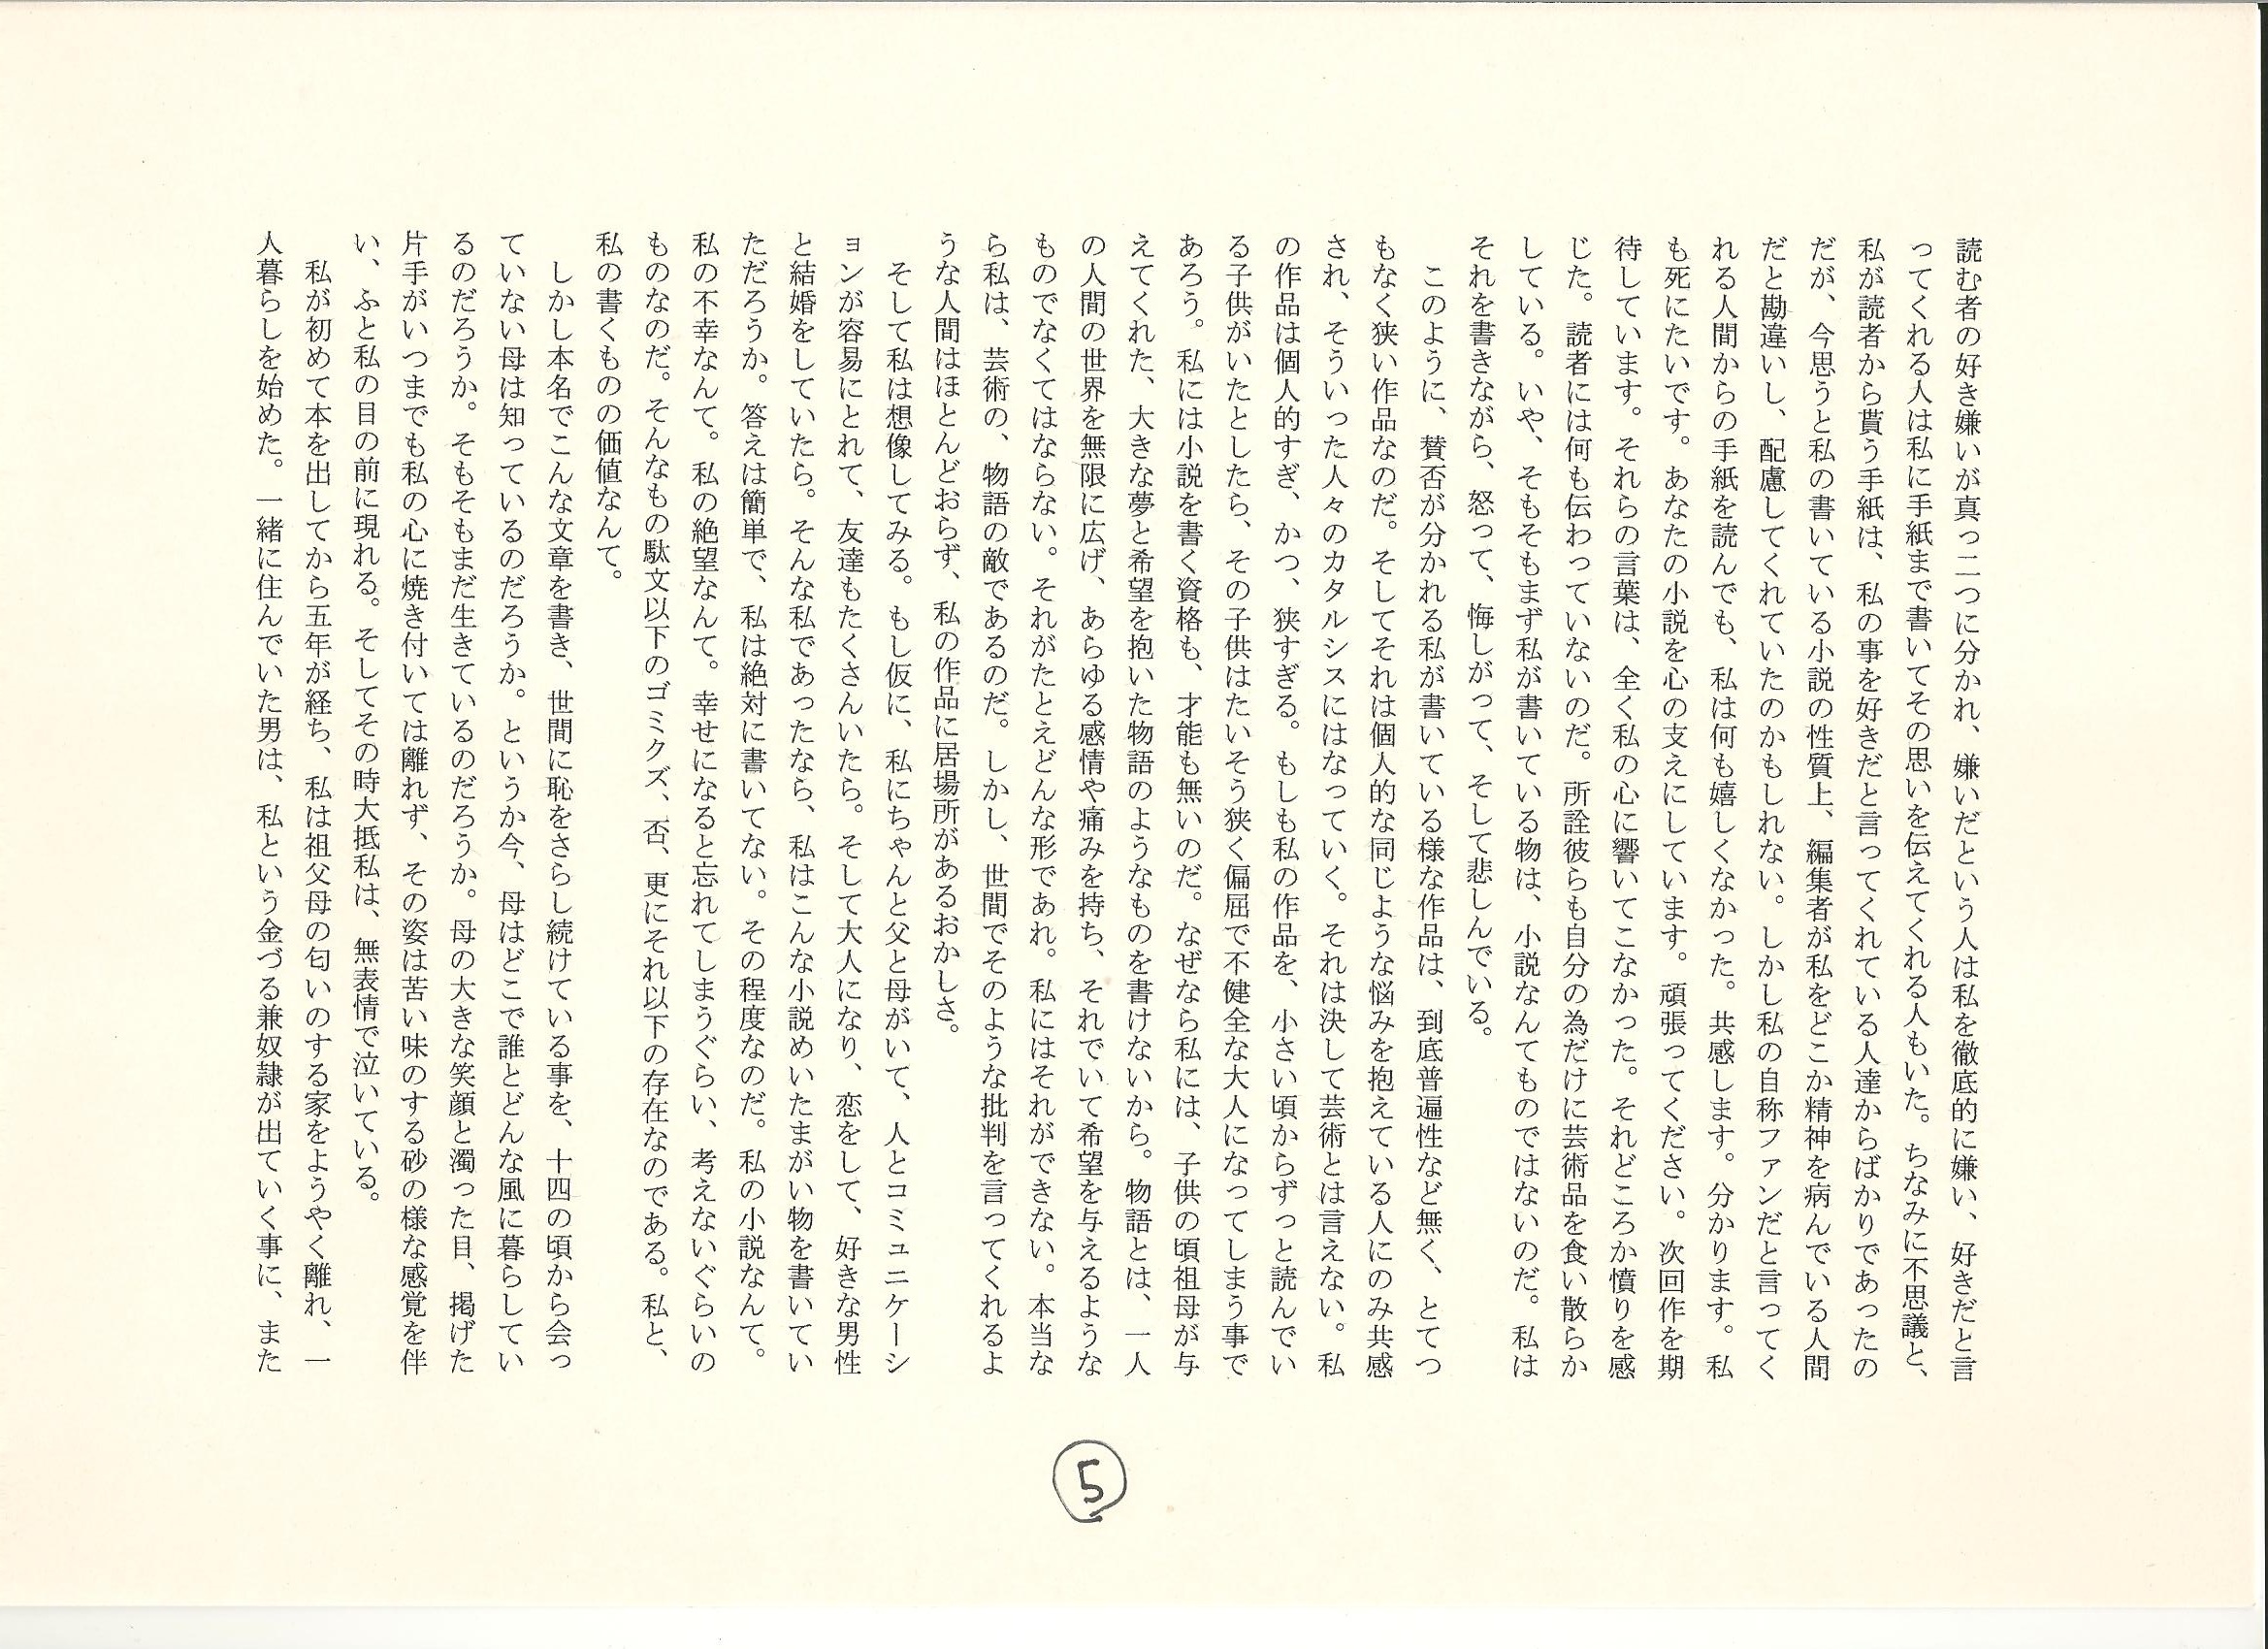 読む者の好き嫌いが真っ二つに分かれ、嫌いだという人は私を徹底的に嫌い、好きだと言
ってくれる人は私に手紙まで書いてその思いを伝えてくれる人もいた。ちなみに不思議と、
私が読者から貰う手紙は、私の事を好きだと言ってくれている人達からばかりであったの
だが、今思うと私の書いている小説の性質上、編集者が私をどこか精神を病んでいる人間
だと勘違いし、配慮してくれていたのかもしれない。しかし私の自称ファンだと言ってく
れる人間からの手紙を読んでも、私は何も嬉しくなかった。共感します。分かります。私
も死にたいです。あなたの小説を心の支えにしています。頑張ってください。次回作を期
待しています。それらの言葉は、全く私の心に響いてこなかった。それどころか憤りを感
じた。読者には何も伝わっていないのだ。所詮彼らも自分の為だけに芸術品を食い散らか
している。いや、そもそもまず私が書いている物は、小説なんてものではないのだ。私は
それを書きながら、怒って、悔しがって、そして悲しんでいる。
このように、賛否が分かれる私が書いている様な作品は、到底普遍性など無く、とてつ
もなく狭い作品なのだ。そしてそれは個人的な同じような悩みを抱えている人にのみ共感
され、そういった人々のカタルシスにはなっていく。それは決して芸術とは言えない。私
の作品は個人的すぎ、かつ、狭すぎる。もしも私の作品を、小さい頃からずっと読んでい
る子供がいたとしたら、その子供はたいそう狭く偏屈で不健全な大人になってしまう事で
あろう。私には小説を書く資格も、才能も無いのだ。なぜなら私には、子供の頃祖母が与
えてくれた、大きな夢と希望を抱いた物語のようなものを書けないから。物語とは、一人
の人間の世界を無限に広げ、あらゆる感情や痛みを持ち、それでいて希望を与えるような
ものでなくてはならない。それがたとえどんな形であれ。私にはそれができない。本当な
ら私は、芸術の、物語の敵であるのだ。しかし、世間でそのような批判を言ってくれるよ
うな人間はほとんどおらず、私の作品に居場所があるおかしさ。
そして私は想像してみる。もし仮に、私にちゃんと父と母がいて、人とコミュニケーシ
ョンが容易にとれて、友達もたくさんいたら。そして大人になり、恋をして、好きな男性
と結婚をしていたら。そんな私であったなら、私はこんな小説めいたまがい物を書いてい
ただろうか。答えは簡単で、私は絶対に書いてない。その程度なのだ。私の小説なんて。
私の不幸なんて。私の絶望なんて。幸せになると忘れてしまうぐらい、考えないぐらいの
ものなのだ。そんなもの駄文以下のゴミクズ、否、更にそれ以下の存在なのである。私と、
私の書くものの価値なんて。
しかし本名でこんな文章を書き、世間に恥をさらし続けている事を、十四の頃から会っ
ていない母は知っているのだろうか。というか今、母はどこで誰とどんな風に暮らしてい
るのだろうか。そもそもまだ生きているのだろうか。母の大きな笑顔と濁った目、掲げた
片手がいつまでも私の心に焼き付いては離れず、その姿は苦い味のする砂の様な感覚を伴
い、ふと私の目の前に現れる。そしてその時大抵私は、無表情で泣いている。
私が初めて本を出してから五年が経ち、私は祖父母の匂いのする家をようやく離れ、一
人暮らしを始めた。一緒に住んでいた男は、私という金づる兼奴隷が出ていく事に、また
5